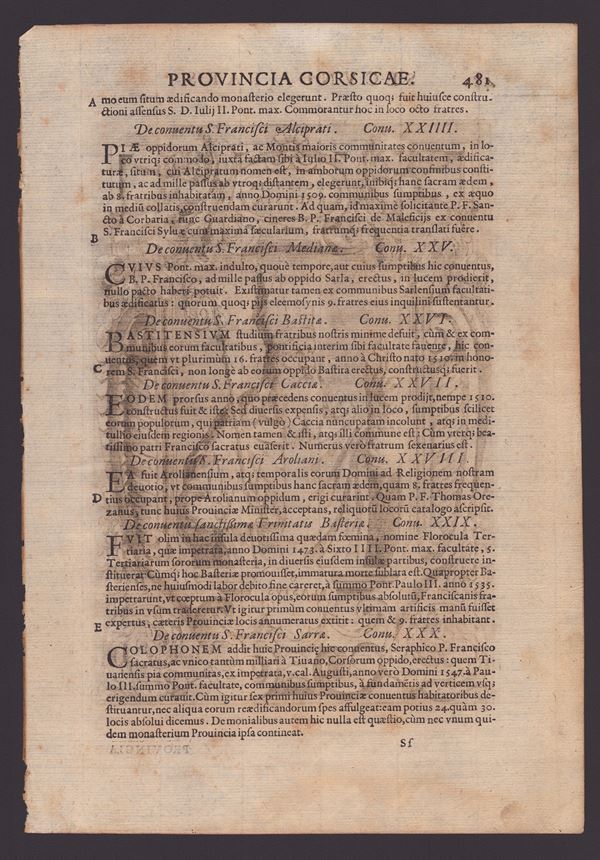 PROVINCIA CORSICAE. 481
A mo eum situm ædificando monasterio elegerunt. Præsto quoq; fuit huiusce constru-
ctioni assensus S. D. Iulij II. Pont. max. Commorantur hoc in loco octo fratres.
De conuentu S. Francisci Alciprati. Conu. XXIIII.
PIÆ oppidorum Alciprati, ac Montis maioris communitates conuentum, in lo-
co vtriq; commodo, iuxta factam sibi à Iulio II. Pont. max. facultatem, ædifica-
turæ, situm, cui Alcipratum nomen est, in amborum oppidorum confinibus consti-
tutum, ac ad mille passus ab vtroq; distantem, elegerunt, inibiq; hanc sacram ædem,
ab 8. fratribus inhabitatam, anno Domini 1509. communibus sumptibus, ex æquo
in mediũ collatis, construendam curarunt. Ad quam, id maximè solicitante P. F. San-
cto à Corbaria, tunc Guardiano, cineres B. P. Francisci de Maleficijs ex conuentu
S. Francisci Syluæ cum maxima sæcularium, fratrumq; frequentia translati fuêre.
B
De conuentu S. Francisci Medianæ. Conu. XXV.
CVIVS Pont. max. indulto, quouè tempore, aut cuius sumptibus hic conuentus,
B. P. Francisco, ad mille passus ab oppido Sarla, erectus, in lucem prodierit,
nullo pacto haberi potuit. Existimatur tamen ex communibus Sarlensium facultati-
bus ædificatus: quorum quoq; pijs eleemosynis 9. fratres eius inquilini sustentantur.
De conuentu S. Francisci Bastitæ. Conu. XXVI.
BASTITENSIVM studium fratribus nostris minime defuit, cùm & ex com-
munibus eorum facultatibus, pontificia interim sibi facultate fauente, hic con-
uentus, quem vt plurimùm 16. fratres occupant, anno à Christo nato 1510. in hono-
C rem S. Francisci, non longè ab eorum oppido Bastita erectus, constructusq; fuerit.
De conuentu S. Francisci Cacciæ. Conu. XXVII.
EODEM prorsus anno, quo præcedens conuentus in lucem prodijt, nempe 1510.
constructus fuit & iste: Sed diuersis expensis, atq; alio in loco, sumptibus scilicet
eorum populorum, qui patriam (vulgò) Caccia nuncupatam incolunt, atq; in medi-
tullio eiusdem regionis. Nomen tamen & isti, atq; illi commune est: Cùm vterq; bea-
tissimo patri Francisco sacratus euaserit. Numerus verò fratrum sexenarius est.
De conuentu S. Francisci Aroliani. Conu. XXVIII.
EA fuit Arolianensium, atq; temporalis eorum Domini ad Religionem nostram
deuotio, vt communibus sumptibus hanc sacram ædem, quam 8. fratres frequen-
D tius occupant, prope Arolianum oppidum, erigi curarint. Quam P. F. Thomas Ore-
zanus, tunc huius Prouinciæ Minister, acceptans, reliquorũ locorũ catalogo ascripsit.
De conuentu sanctissimæ Trinitatis Basteriæ. Conu. XXIX.
FVIT olim in hac insula deuotissima quædam fœmina, nomine Florocula Ter-
tiaria, quæ impetrata, anno Domini 1473. à Sixto IIII. Pont. max. facultate, 5.
Tertiariarum sororum monasteria, in diuersis eiusdem insulæ partibus, construere in-
stituerat: Cùmq; hoc Basteriæ promouisset, immatura morte sublata est. Quapropter Ba-
sterienses, ne huiusmodi labor debito fine careret, à summo Pont. Paulo III. anno 1535.
impetrarunt, vt cœptum à Florocula opus, eorum sumptibus absolutũ, Franciscanis fra-
tribus in vsum traderetur. Vt igitur primùm conuentus vltimam artificis manũ fuisset
E expertus, cæteris Prouinciæ locis annumeratus extitit: quem & 9. fratres inhabitant.
De conuentu S. Francisci Sarræ. Conu. XXX.
COLOPHONEM addit huic Prouinciæ hic conuentus, Seraphico P. Francisco
sacratus, ac vnico tantùm milliari à Tiuano, Corsorum oppido, erectus: quem Ti-
uariensis pia communitas, ex impetrata, v. cal. Augusti, anno verò Domini 1547. à Pau-
lo III. summo Pont. facultate, communibus sumptibus, à fundamẽtis ad verticem vsq;
erigendum curauit. Cùm igitur sex primi huius Prouinciæ conuentus habitatoribus de-
stituantur, nec aliqua eorum reædificandorum spes affulgeat: eam potius 24. quàm 30.
locis absolui dicemus. De monialibus autem hic nulla est quæstio, cùm nec vnum qui-
dem monasterium Prouincia ipsa contineat.
Sf